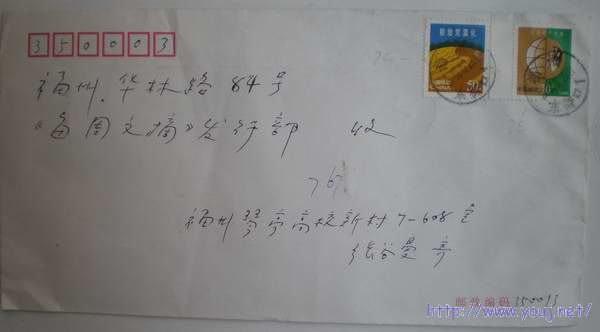 350003
福州.华林路84号
《每周文摘》发行部 收
福州琴亭高校新村7-608室
张谷曼 寄
邮政编码 350013
http://www.youj.net/